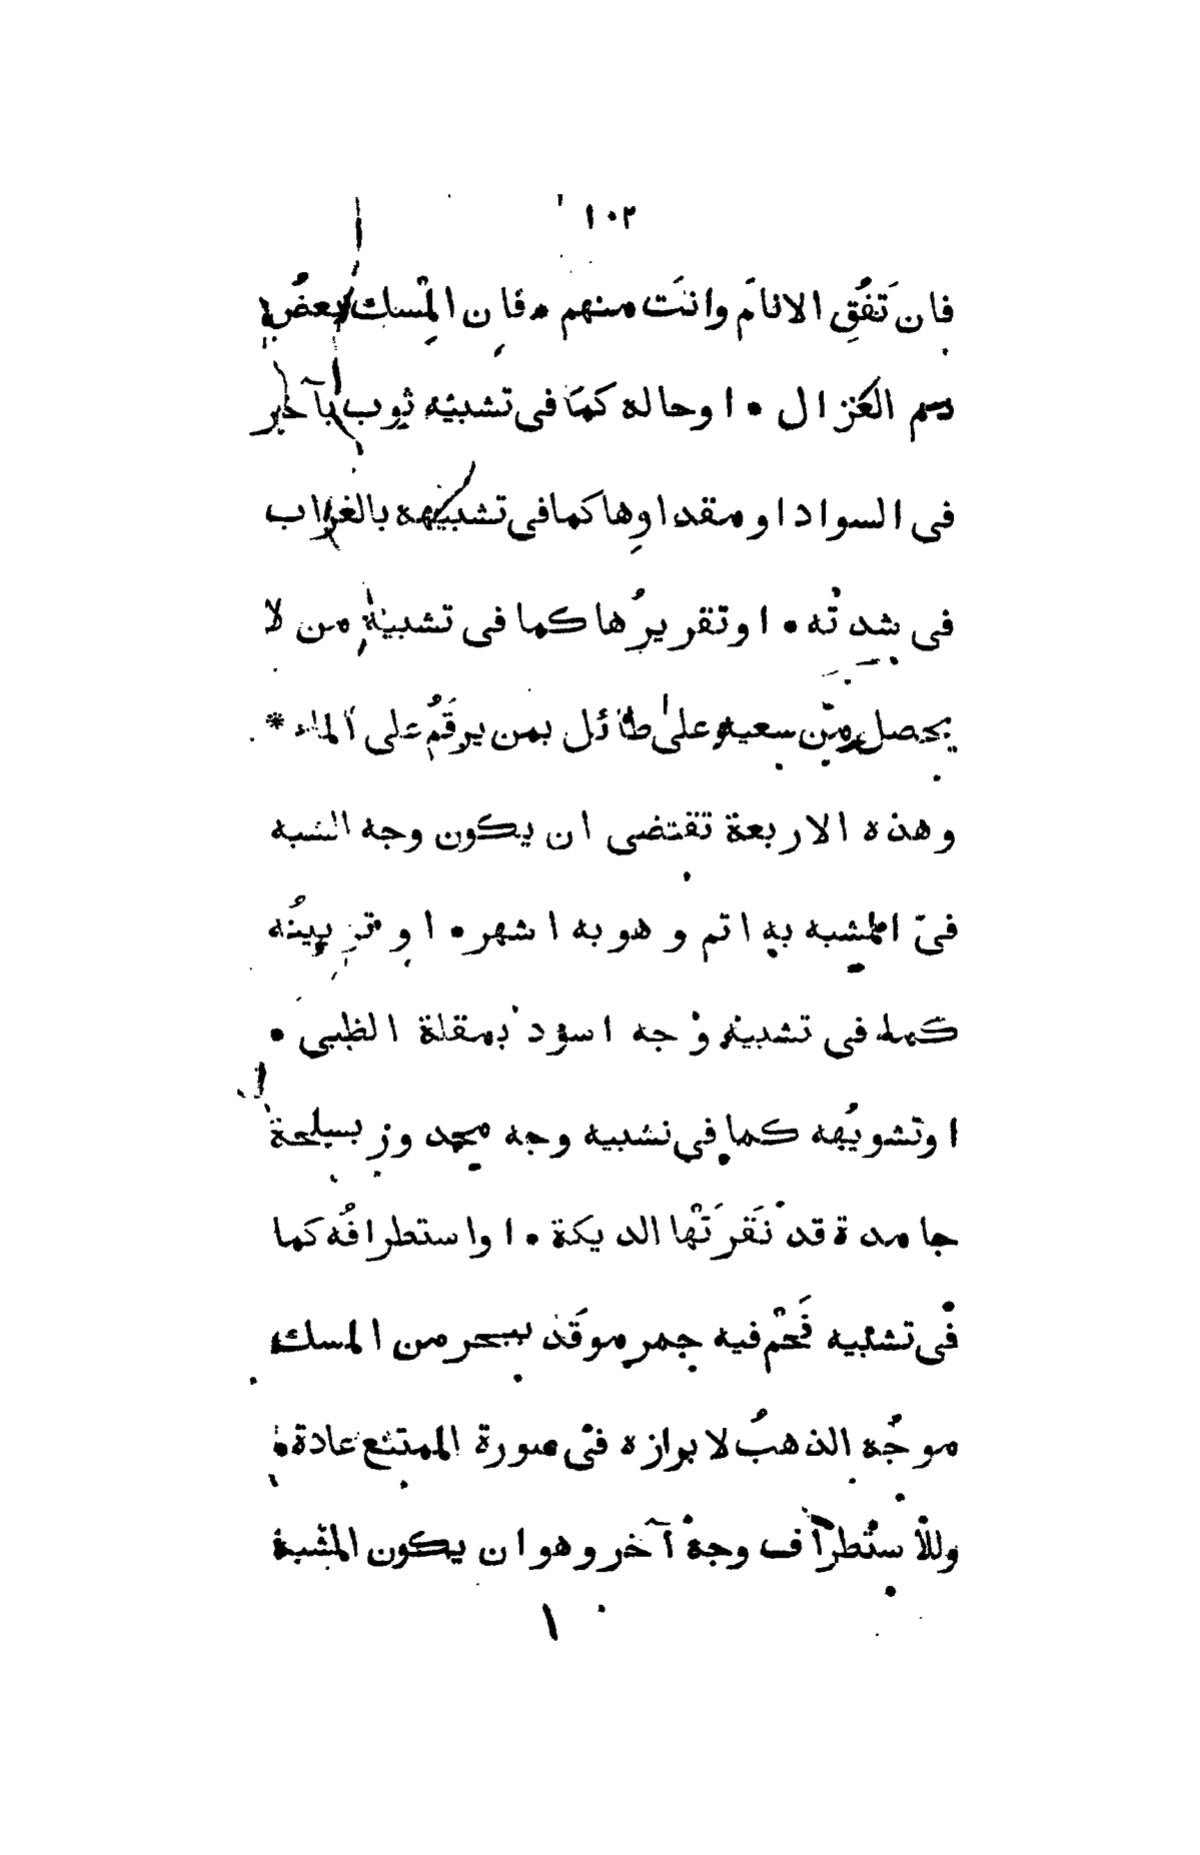 ١٠٢
فان تَفُقِ الانامَ وانتَ منهم • فان المِسك بعضُ
دم الغزال • اوحاله كما فى تشبيه ثوب بآخر
فى السواد او مقدارها كما فى تشبيهه بالغراب
فى شدته • اوتقريرُها كما فى تشبيه من لا
يحصل من سعيه على طائل بمن يرقُم على الماء *
وهذه الاربعة تقتضى ان يكون وجه الشبه
فى المشبه به اتم وهو به اشهر • او تزيينُه
كما فى تشبيه وجه اسود بمقلة الظبى •
اوتشويُهه كما فى تشبيه وجه مجدور بسلحة
جامدة قد نَقَرَتْها الديكة • اواستطرافُه كما
فى تشبيه فَحْم فيه جمر موقَد ببحر من المسك
موجُه الذهبُ لابرازه فى صورة الممتنع عادة
وللاستطراف وجه آخر وهو ان يكون المشبه